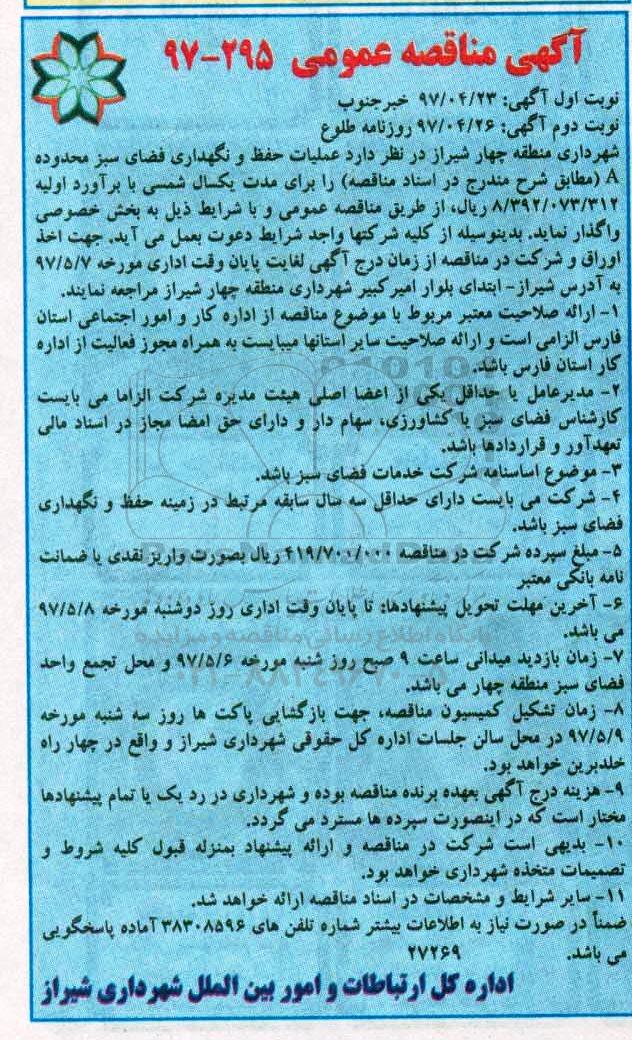 آگهی مناقصه عمومی ۲۹۵-۹۷
نوبت اول آگهی: ۹۷/۰۴/۲۳ خبرجنوب
نوبت دوم آگهی: ۹۷/۰۴/۲۶ روزنامه طلوع
شهرداری منطقه چهار شیراز در نظر دارد عملیات حفظ و نگهداری فضای سبز محدوده
A (مطابق شرح مندرج در اسناد مناقصه) را برای مدت یکسال شمسی با برآورد اولیه
۸/۳۹۲/۰۷۳/۳۱۲ ریال، از طریق مناقصه عمومی و با شرایط ذیل به بخش خصوصی
واگذار نماید. بدینوسیله از کلیه شرکتها واجد شرایط دعوت بعمل می آید. جهت اخذ
اوراق و شرکت در مناقصه از زمان درج آگهی لغایت پایان وقت اداری مورخه ۹۷/۵/۷
به آدرس شیراز- ابتدای بلوار امیرکبیر شهرداری منطقه چهار شیراز مراجعه نمایند.
۱- ارائه صلاحیت معتبر مربوط با موضوع مناقصه از اداره کار و امور اجتماعی استان
فارس الزامی است و ارائه صلاحیت سایر استانها میبایست به همراه مجوز فعالیت از اداره
کار استان فارس باشد.
۲- مدیرعامل یا حداقل یکی از اعضا اصلی هیئت مدیره شرکت الزاما می بایست
کارشناس فضای سبز یا کشاورزی، سهام دار و دارای حق امضا مجاز در اسناد مالی
تعهدآور و قراردادها باشد.
۳- موضوع اساسنامه شرکت خدمات فضای سبز باشد.
۴- شرکت می بایست دارای حداقل سه سال سابقه مرتبط در زمینه حفظ و نگهداری
فضای سبز باشد.
۵- مبلغ سپرده شرکت در مناقصه ۴۱۹/۷۰۰/۰۰۰ ریال بصورت واریز نقدی یا ضمانت
نامه بانکی معتبر
۶- آخرین مهلت تحویل پیشنهادها: تا پایان وقت اداری روز دوشنبه مورخه ۹۷/۵/۸
می باشد.
۷- زمان بازدید میدانی ساعت ۹ صبح روز شنبه مورخه ۹۷/۵/۶ و محل تجمع واحد
فضای سبز منطقه چهار می باشد.
۸- زمان تشکیل کمیسیون مناقصه، جهت بازگشایی پاکت ها روز سه شنبه مورخه
۹۷/۵/۹ در محل سالن جلسات اداره کل حقوقی شهرداری شیراز و واقع در چهار راه
خلدبرین خواهد بود.
۹- هزینه درج آگهی بعهده برنده مناقصه بوده و شهرداری در رد یک یا تمام پیشنهادها
مختار است که در اینصورت سپرده ها مسترد می گردد.
۱۰- بدیهی است شرکت در مناقصه و ارائه پیشنهاد بمنزله قبول کلیه شروط و
تصمیمات متخذه شهرداری خواهد بود.
۱۱- سایر شرایط و مشخصات در اسناد مناقصه ارائه خواهد شد.
ضمناً در صورت نیاز به اطلاعات بیشتر شماره تلفن های ۳۸۳۰۸۵۹۶ آماده پاسخگویی
می باشد. ۲۷۲۶۹
اداره کل ارتباطات و امور بین الملل شهرداری شیراز